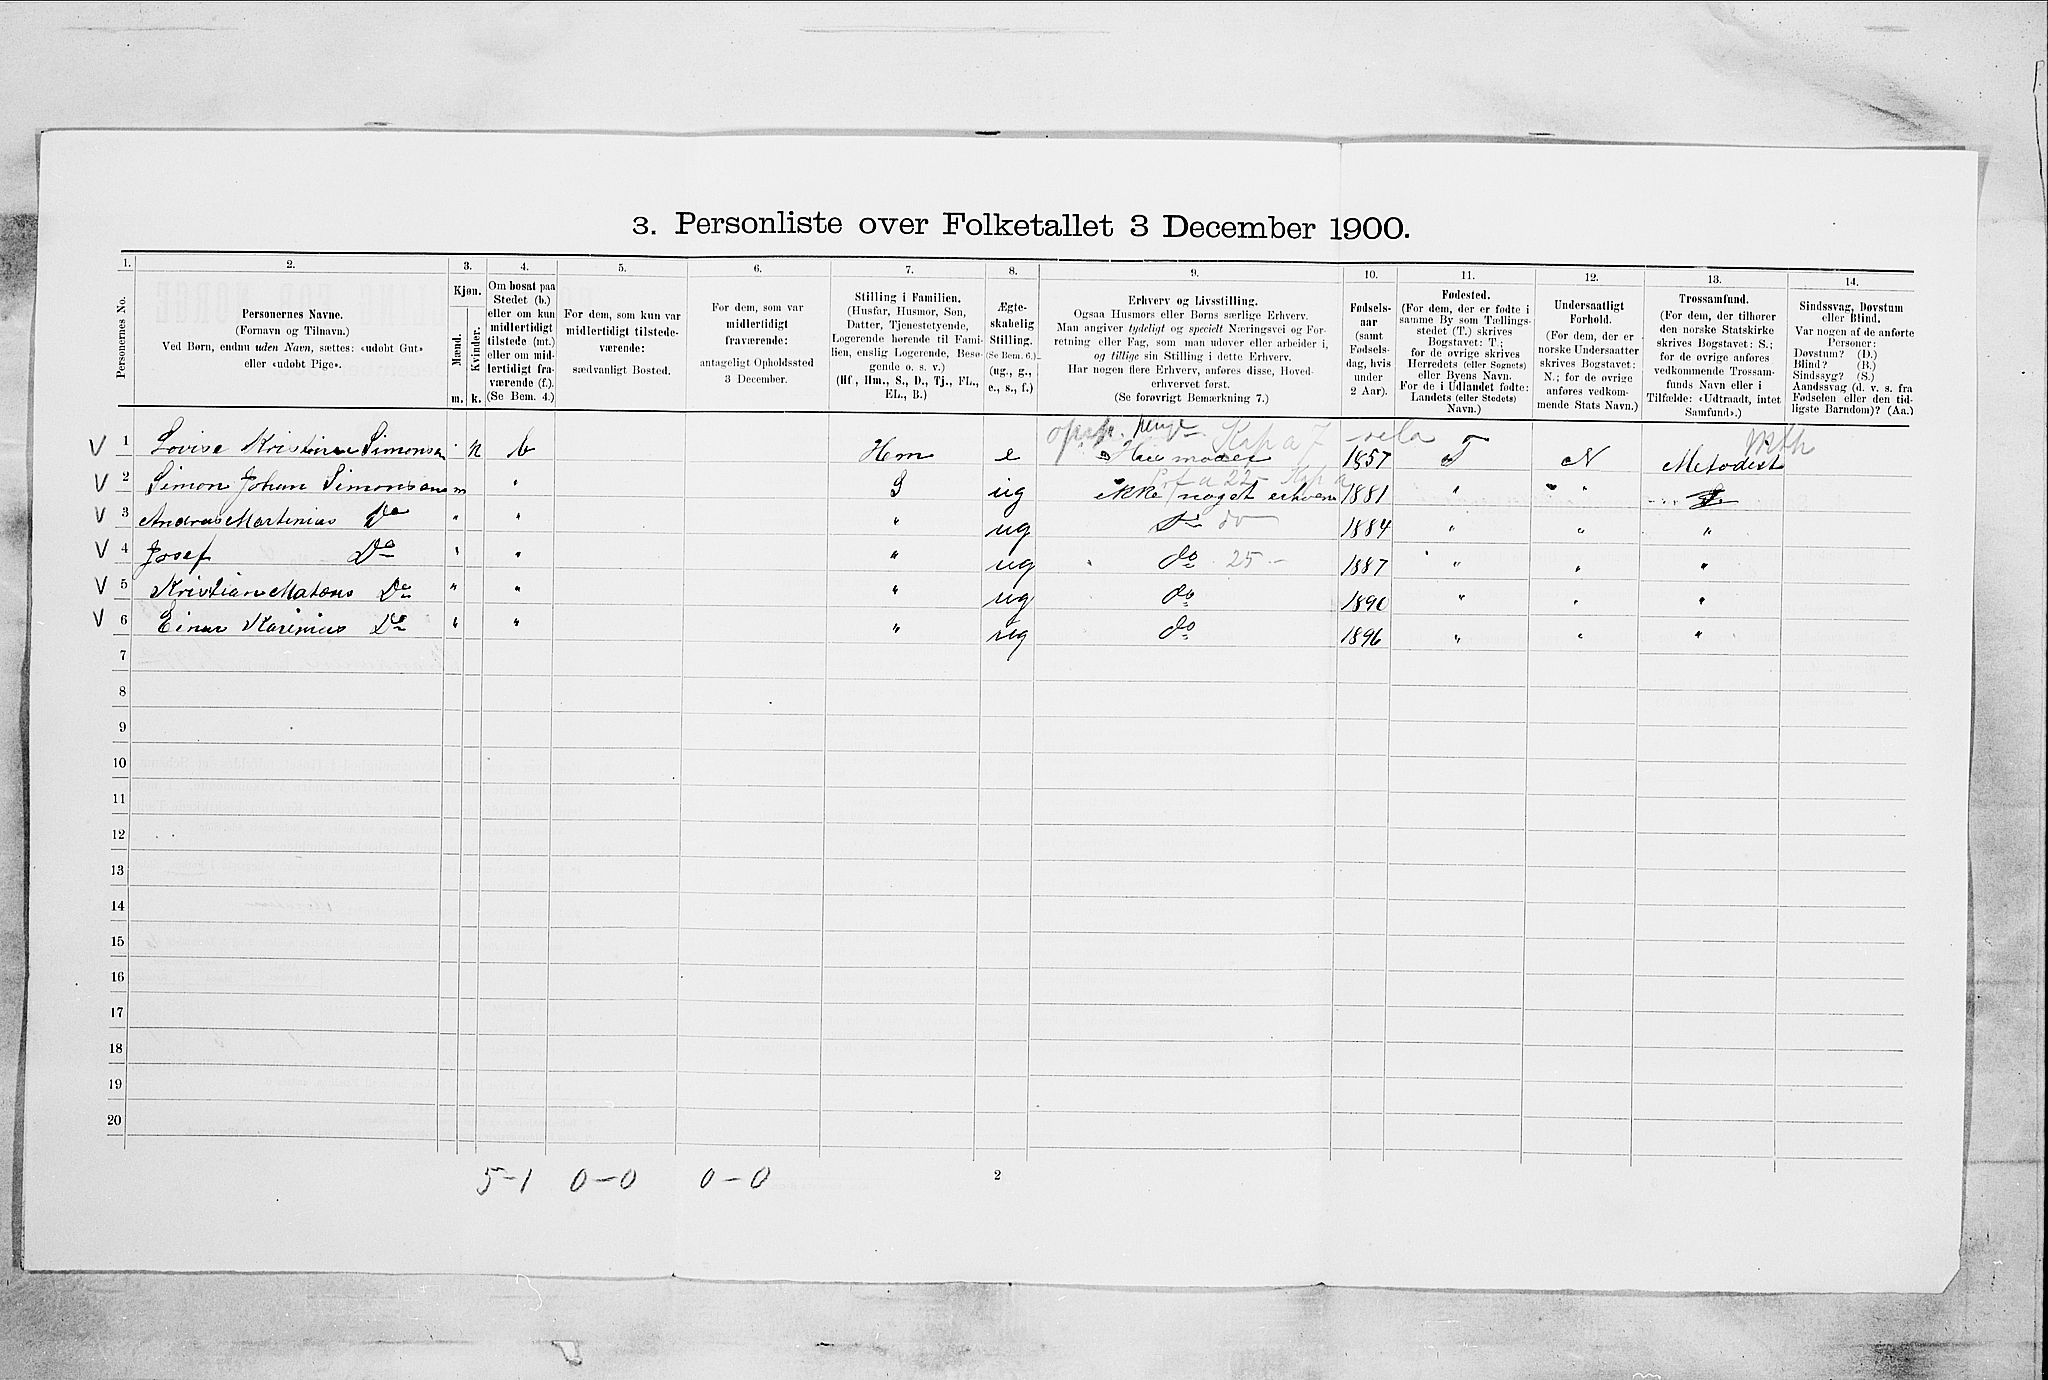 3. Personliste over Folketallet 3 December 1900.
1. 2. 3. 4. 5. 6. 7. 8. 9. 10. 11. 12. 13. 14.
Personernes No.
Personernes Navne.
(Fornavn og Tilnavn.)
Ved Børn, endnu uden Navn, sættes: «udøbt Gut»
eller «udøbt Pige».
Kjøn.
Mænd.
Kvinder.
m. k.
Om bosat paa
Stedet (b.)
eller om kun
midlertidigt
tilstede (mt.)
eller om mid-
lertidigt fra-
værende (f.).
(Se Bem. 4.)
For dem, som kun var
midlertidigt tilstede-
værende:
sædvanligt Bosted.
For dem, som var
midlertidigt
fraværende:
antageligt Opholdssted
3 December.
Stilling i Familien.
(Husfar, Husmor, Søn,
Datter, Tjenestetyende,
Logerende hørende til Fami-
lien, enslig Logerende, Besø-
gende o. s. v.)
(Hf., Hm., S., D., Tj., FL.,
EL., B.)
Ægte-
skabelig
Stilling.
(Se Bem. 6.)
(ug., g.,
e., s., f.)
Erhverv og Livsstilling.
Ogsaa Husmors eller Børns særlige Erhverv.
Man angiver tydeligt og specielt Næringsvei og For-
retning eller Fag, som man udover eller arbeider i,
og tillige sin Stilling i dette Erhverv.
Har nogen flere Erhverv, anføres disse, Hoved-
erhvervet først.
(Se forøvrigt Bemærkning 7.)
Fødsels-
aar
(samt
Fødsels-
dag, hvis
under
2 Aar).
Fødested.
(For dem, der er fødte i
samme By som Tællings-
stedet (T.) skrives
Bogstavet: T.;
for de øvrige skrives
Herredets (eller Sognets)
eller Byens Navn.
For de i Udlandet fødte:
Landets (eller Stedets)
Navn.)
Undersaatligt
Forhold.
(For dem, der er
norske Undersaatter
skrives Bogstavet:
N.; for de øvrige
anføres vedkom-
mende Stats Navn.)
Trossamfund.
(For dem, der tilhører
den norske Statskirke
skrives Bogstavet: S.;
for de øvrige anføres
vedkommende Trossam-
funds Navn eller i
Tilfælde: «Udtraadt, intet
Samfund».)
Sindssvag, Døvstum
eller Blind.
Var nogen af de anførte
Personer:
Døvstum? (D.)
Blind? (B.)
Sindssyg? (S.)
Aandssvag (d. v. s. fra
Fødselen eller den tid-
ligste Barndom)? (Aa.)
V 1 Lovise Kristine Simonsen k b Hm e Husmoder 1857 T N Metodist Meth
V 2 Simon Johan Simonsen m " S ug ikke noget erhverv 1881 " "
V 3 Andreas Martinius Do " " " ug do 1884 " " "
V 4 Josef Do " " " ug do 25 1887 " " "
V 5 Kristian Do " " " ug do 1890 " " "
V 6 Einar Do " " " ug do 1896 " " "
7
8
9
10
11
12
13
14
15
16
17
18
19
20
5-1 0-0 0-0 2